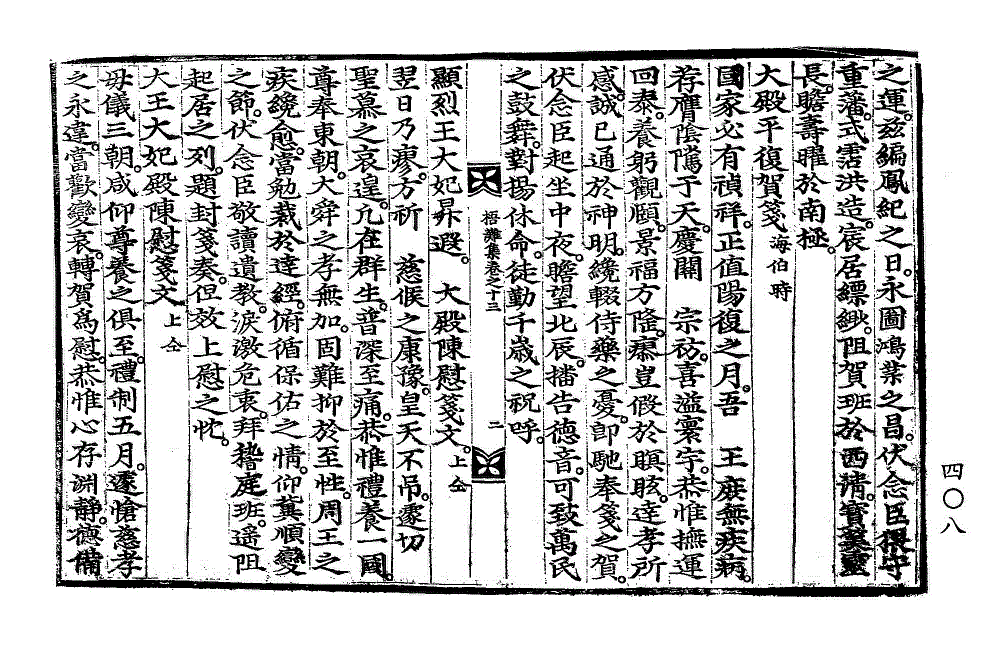 之運。茲編鳳紀之日。永圖鴻業之昌。伏念臣猥守
重藩。式霑洪造。宸居縹緲。阻賀班於西淸。寶籙靈
長。瞻壽曜於南極。
大殿平復賀箋 海伯時
國家必有禎祥。正値陽復之月。吾 王庶無疾病。
荐膺陰隲于天。慶關 宗祊。喜溢寰宇。恭惟撫運
回泰。養躬觀頤。景福方隆。瘳豈假於瞑眩。達孝所
感。誠已通於神明。纔輟侍藥之憂。卽馳奉箋之賀。
伏念臣起坐中夜。瞻望北辰。播告德音。可致萬民
之鼓舞。對揚休命。徒勤千歲之祝呼。
梧灘集卷之十三 二
顯烈王大妃昇遐。 大殿陳慰箋文。上仝
翌日乃瘳。方祈 慈候之康豫。皇天不吊。遽切
聖慕之哀遑。凡在群生。普深至痛。恭惟禮養一國。
尊奉東朝。大舜之孝無加。固難抑於至性。周王之
疾纔愈。當勉裁於達經。俯循保佑之情。仰冀順變
之節。伏念臣敬讀遺敎。淚激危衷。拜嵇庭班。遙阻
起居之列。題封箋奏。但效上慰之忱。
大王大妃殿陳慰箋文 上仝
母儀三朝。咸仰尊養之俱至。禮制五月。遽愴慈孝
之永違。當歡變哀。轉賀爲慰。恭惟心存淵靜。德備
四〇八